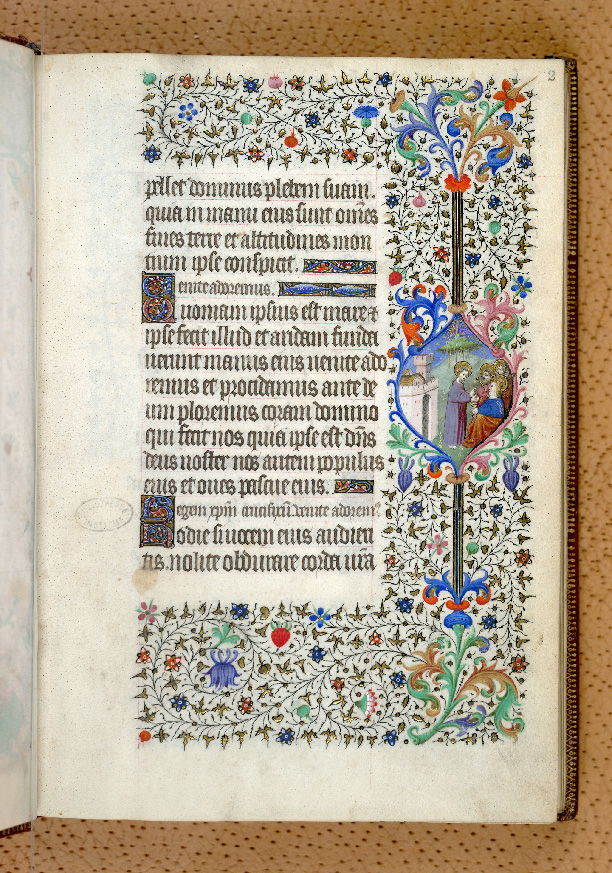 2
pellet dominus plebem suam.
quia in manu eius sunt omnes
fines terre et altitudines mon
tium ipse conspicit.
Venite adoremus.
Quoniam ipsius est mare &
ipse fecit illud et aridam funda
uerunt manus eius uenite ado
remus et procidamus ante de
um ploremus coram domino
qui fecit nos quia ipse est dñs
deus noster nos autem populus
eius et oues pascue eius.
Regem xpm̄ crucifixū. venite adorem̄.
Hodie si uocem eius audieri
tis. nolite obdurare corda ur̄a